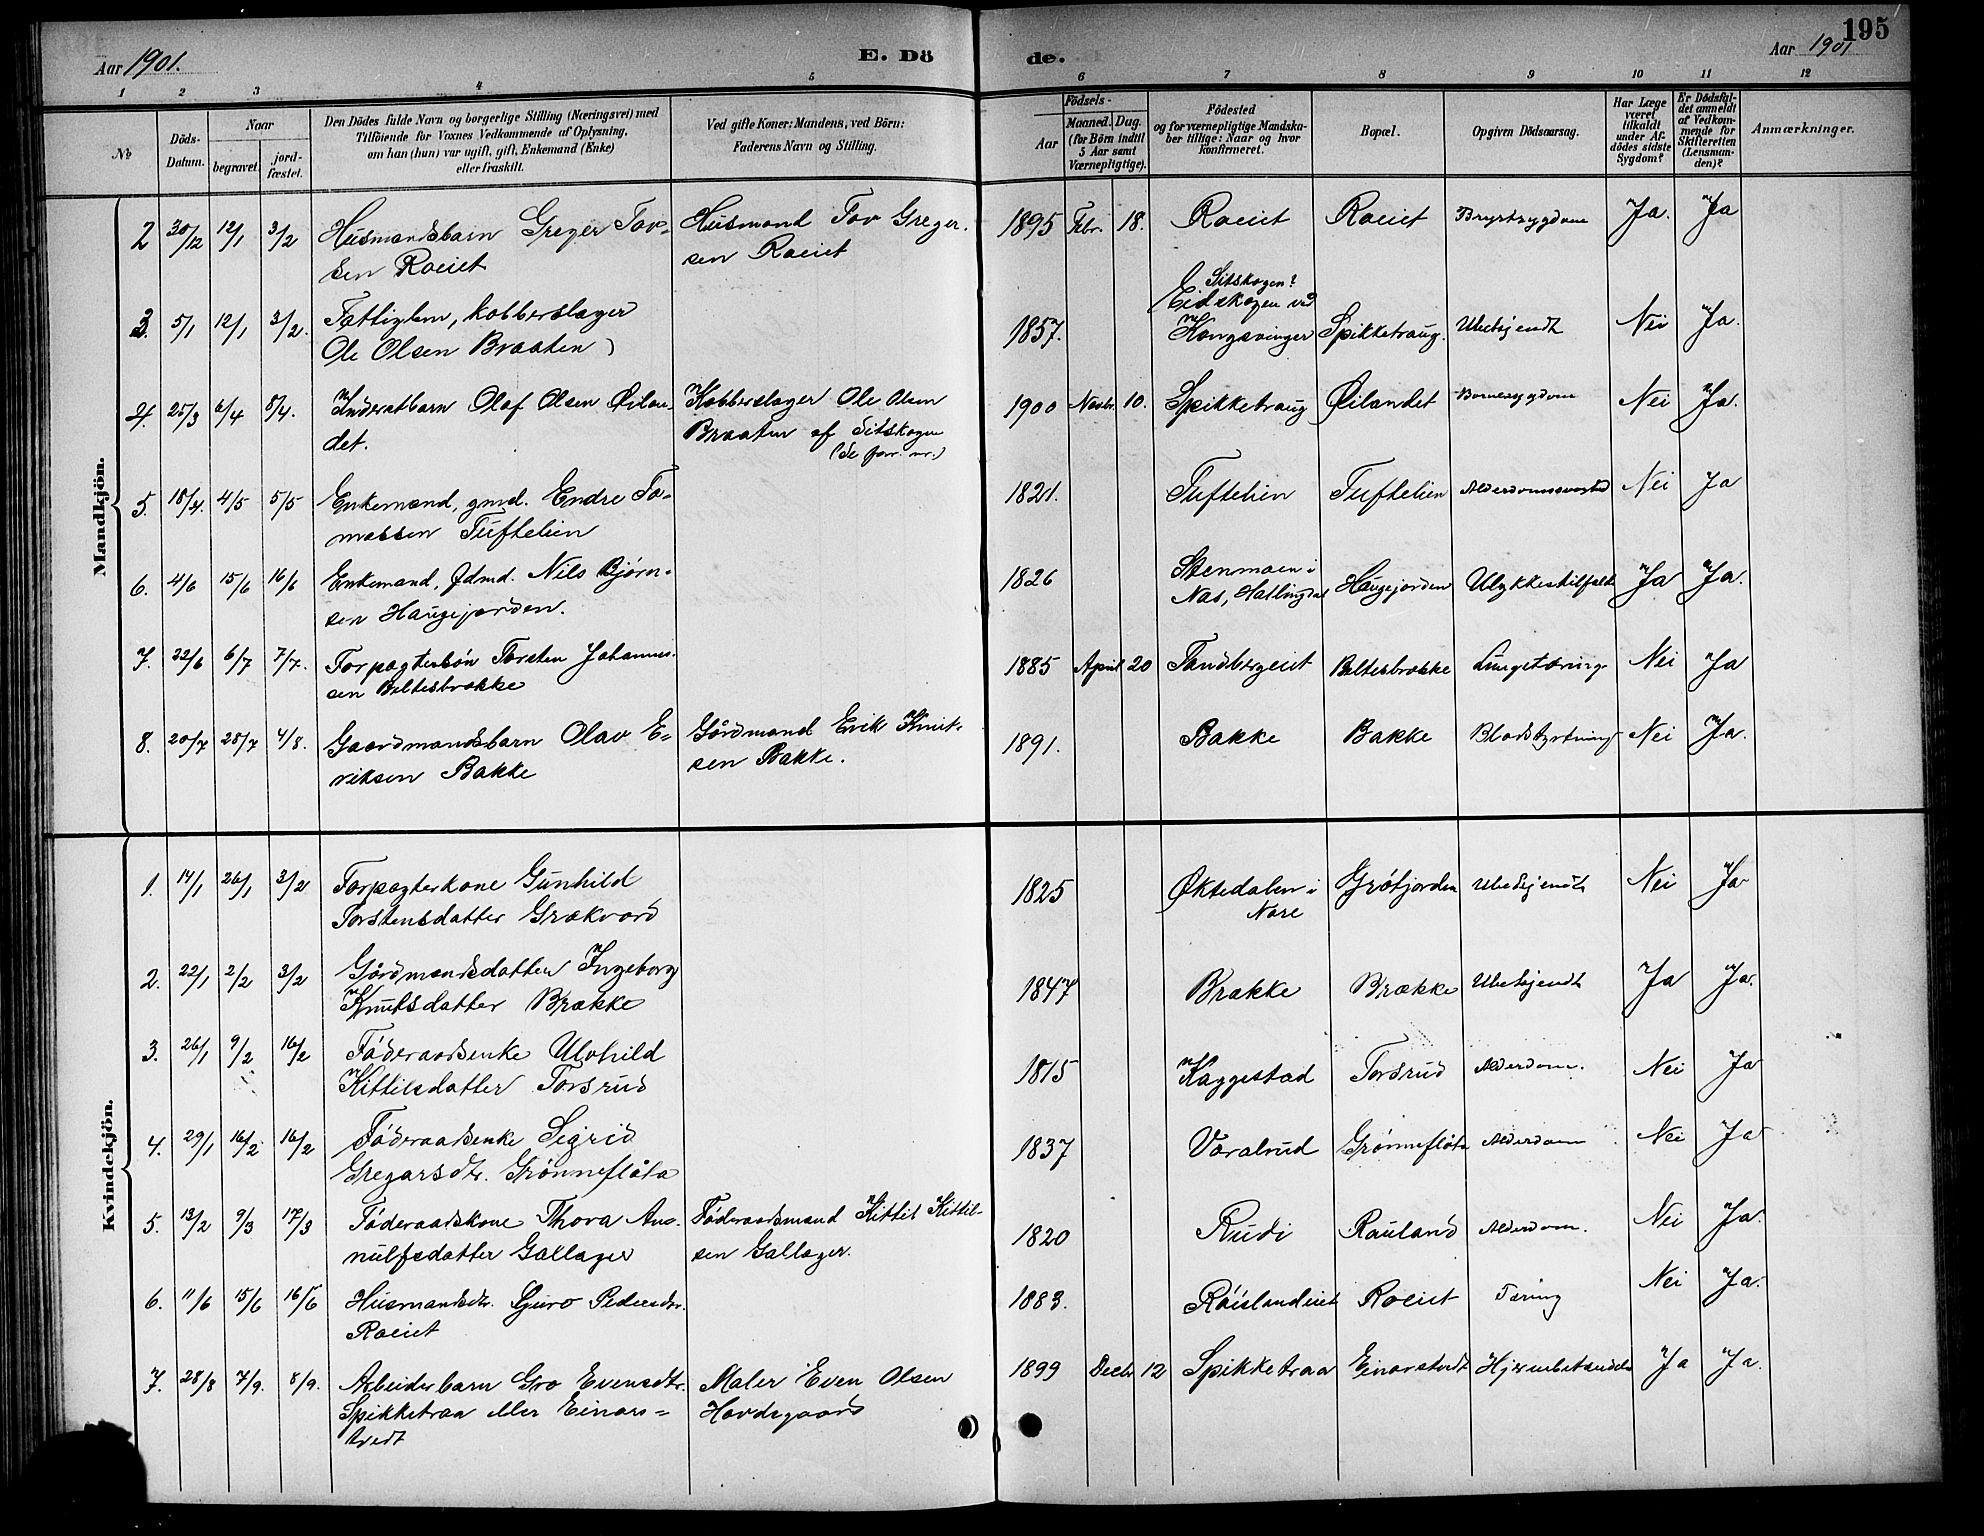 195
Aar 1901.
E. Dö
de.
Aar 1901
1 2 3 4 5 6 7 8 9 10 11 12
No
Döds-
Datum.
Naar
begravet.
jord-
fæstet.
Den Dödes fulde Navn og borgerlige Stilling (Næringsvei) med
Tilföiende for Voxnes Vedkommende af Oplysning,
om han (hun) var ugift, gift, Enkemand (Enke)
eller fraskilt.
Ved gifte Koner: Mandens, ved Börn:
Faderens Navn og Stilling.
Födsels-
Aar
Maaned.
Dag.
(for Börn indtil
5 Aar samt
Værnepligtige).
Födested
og for værnepligtige Mandska-
ber tillige: Naar og hvor
konfirmeret.
Bopæl.
Opgiven Dödsaarsag.
Har Læge
været
tilkaldt
under Af-
dödes sidste
Sygdom?
Er Dödsfal-
det anmeldt
af Vedkom-
mende for
Skifteretten
(Lensman-
den)?
Anmærkninger.
Mandkjön.
2 30/12 12/1 3/2 Husmandsbarn Greger Tov- Husmand Tov Greger- 1895 Febr. 18. Roeiet Roeiet Brystsygdom Ja. Ja
sen Roeiet sen Roeiet
Sitskogen?
3. 5/1 12/1 3/2. Fattiglem, kobberslager 1857. Eidskogen ved Spikketraug. Ubekjendt Nei Ja.
Ole Olsen Braaten Kongsvinger
4. 25/3 6/4 8/4. Inderstbarn Olaf Olsen Øilan- Kobberslager Ole Olsen 1900 Novbr. 10. Spikketraug Øilandet Barnesygdom Nei Ja.
det. Braaten af Sitskogen
(Se forr. nr.)
5. 18/4. 4/5 5/5 Enkemand, gmd. Endre To- 1821. Tuftelien Tuftelien Alderdomssvaghed Nei Ja
massen Tuftelien
6. 4/6 15/6 16/6 Enkemand, fdmd. Nils Bjørn- 1826 Stenmoen i Haugejorden Ulykkestilfælde Ja Ja.
sen Haugejorden. Nas, Hallingdal
7. 22/6 6/7 7/7. Forpagtersøn Torsten Johannes- 1885 April 20 Tandbergeiet Beltesbrække Lungetæring Nei Ja
sen Beltesbrække
8. 20/7 28/7 4/8. Gaardmandsbarn Olav E- Gårdmand Erik Knut- 1891. Bakke Bakke Blodstyrtning Nei Ja.
riksen Bakke sen Bakke.
Kvindekjön.
1. 14/1 26/1 3/2 Forpagterkone Gunhild 1825 Øktedalen i Grøtjorden Ubekjendt Nei Ja
Torstensdatter Grækvord Nore
2. 22/1 2/2 3/2 Gårdmandsdatter Ingeborg 1847 Brække Brække Ubekjendt Ja Ja.
Knutsdatter Brække
3. 26/1 9/2 16/2 Føderaadsenke Ulvhild 1815 Kaggestad Torsrud Alderdom. Nei Ja
Kittilsdatter Torsrud
4. 29/1 16/2 16/2 Føderaadsenke Sigrid 1837 Voralrud Grønneflåta Alderdom Nei Ja
Gregarsdtr. Grønneflåta
5. 13/2 9/3 17/3 Føderaadskone Thora Au- Føderaadsmand Kittil Kittil- 1820 Rudi Rauland Alderdom. Nei Ja.
nulfsdatter Gallager sen Gallager.
6. 11/6 15/6 16/6 Husmandsdr. Guro Pedersdtr. 1883. Røislandeiet Roeiet Tæring Nei Ja.
Roeiet
7. 28/8 7/9. 8/9. Arbeiderbarn Gro Evensdtr. Maler Even Olsen 1899 Decbr 12 Spikketraa Einarstvedt Hjernebetændelse Ja Ja.
Spikketraa eller Einars- Hovdegaard
tvedt